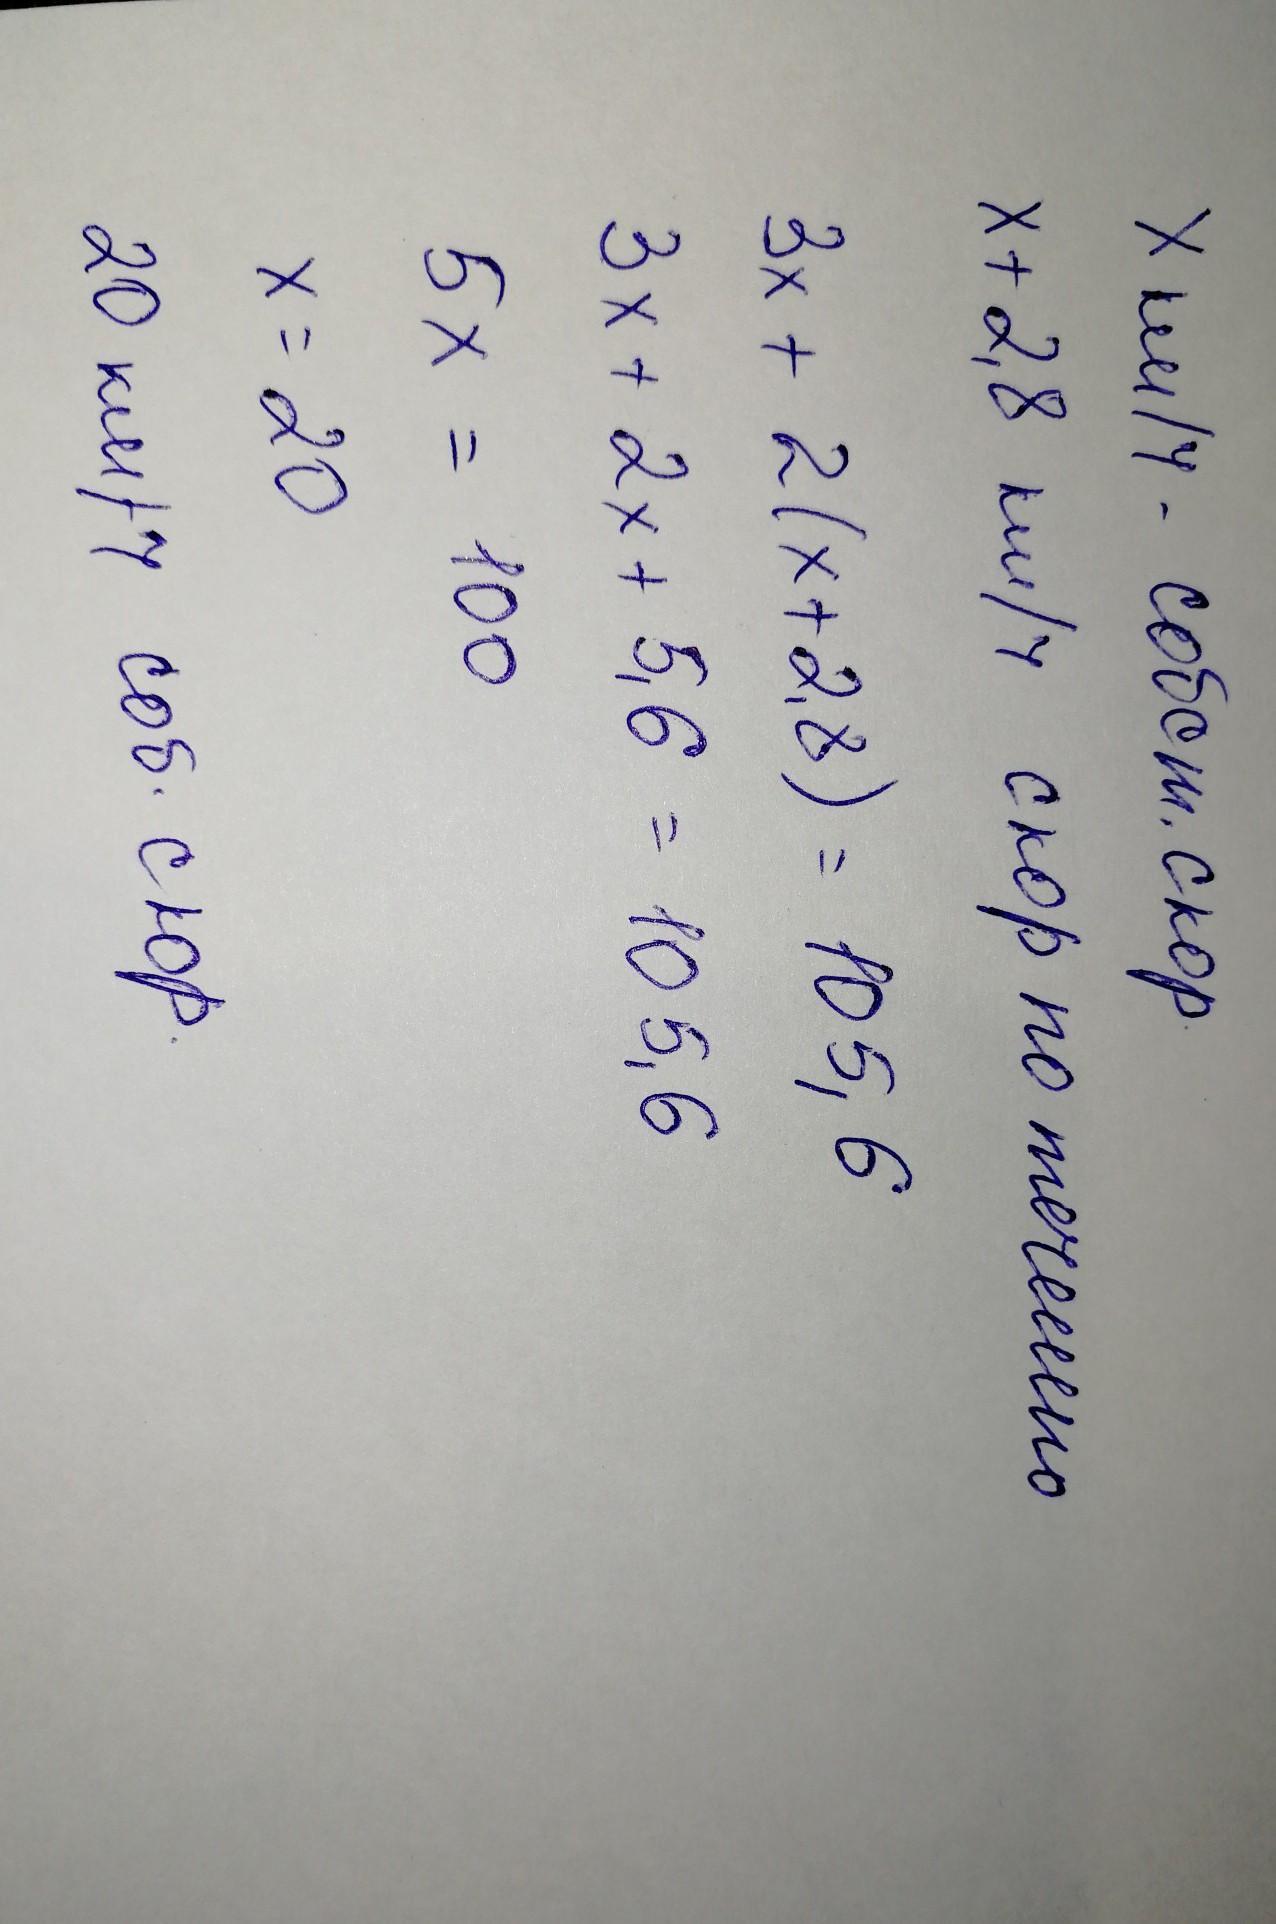 x км/ч - собст. скор.
x + 2,8 км/ч скор по течению
3x + 2(x+2,8) = 105,6
3x + 2x + 5,6 = 105,6
5x = 100
x = 20
20 км/ч соб. скор.